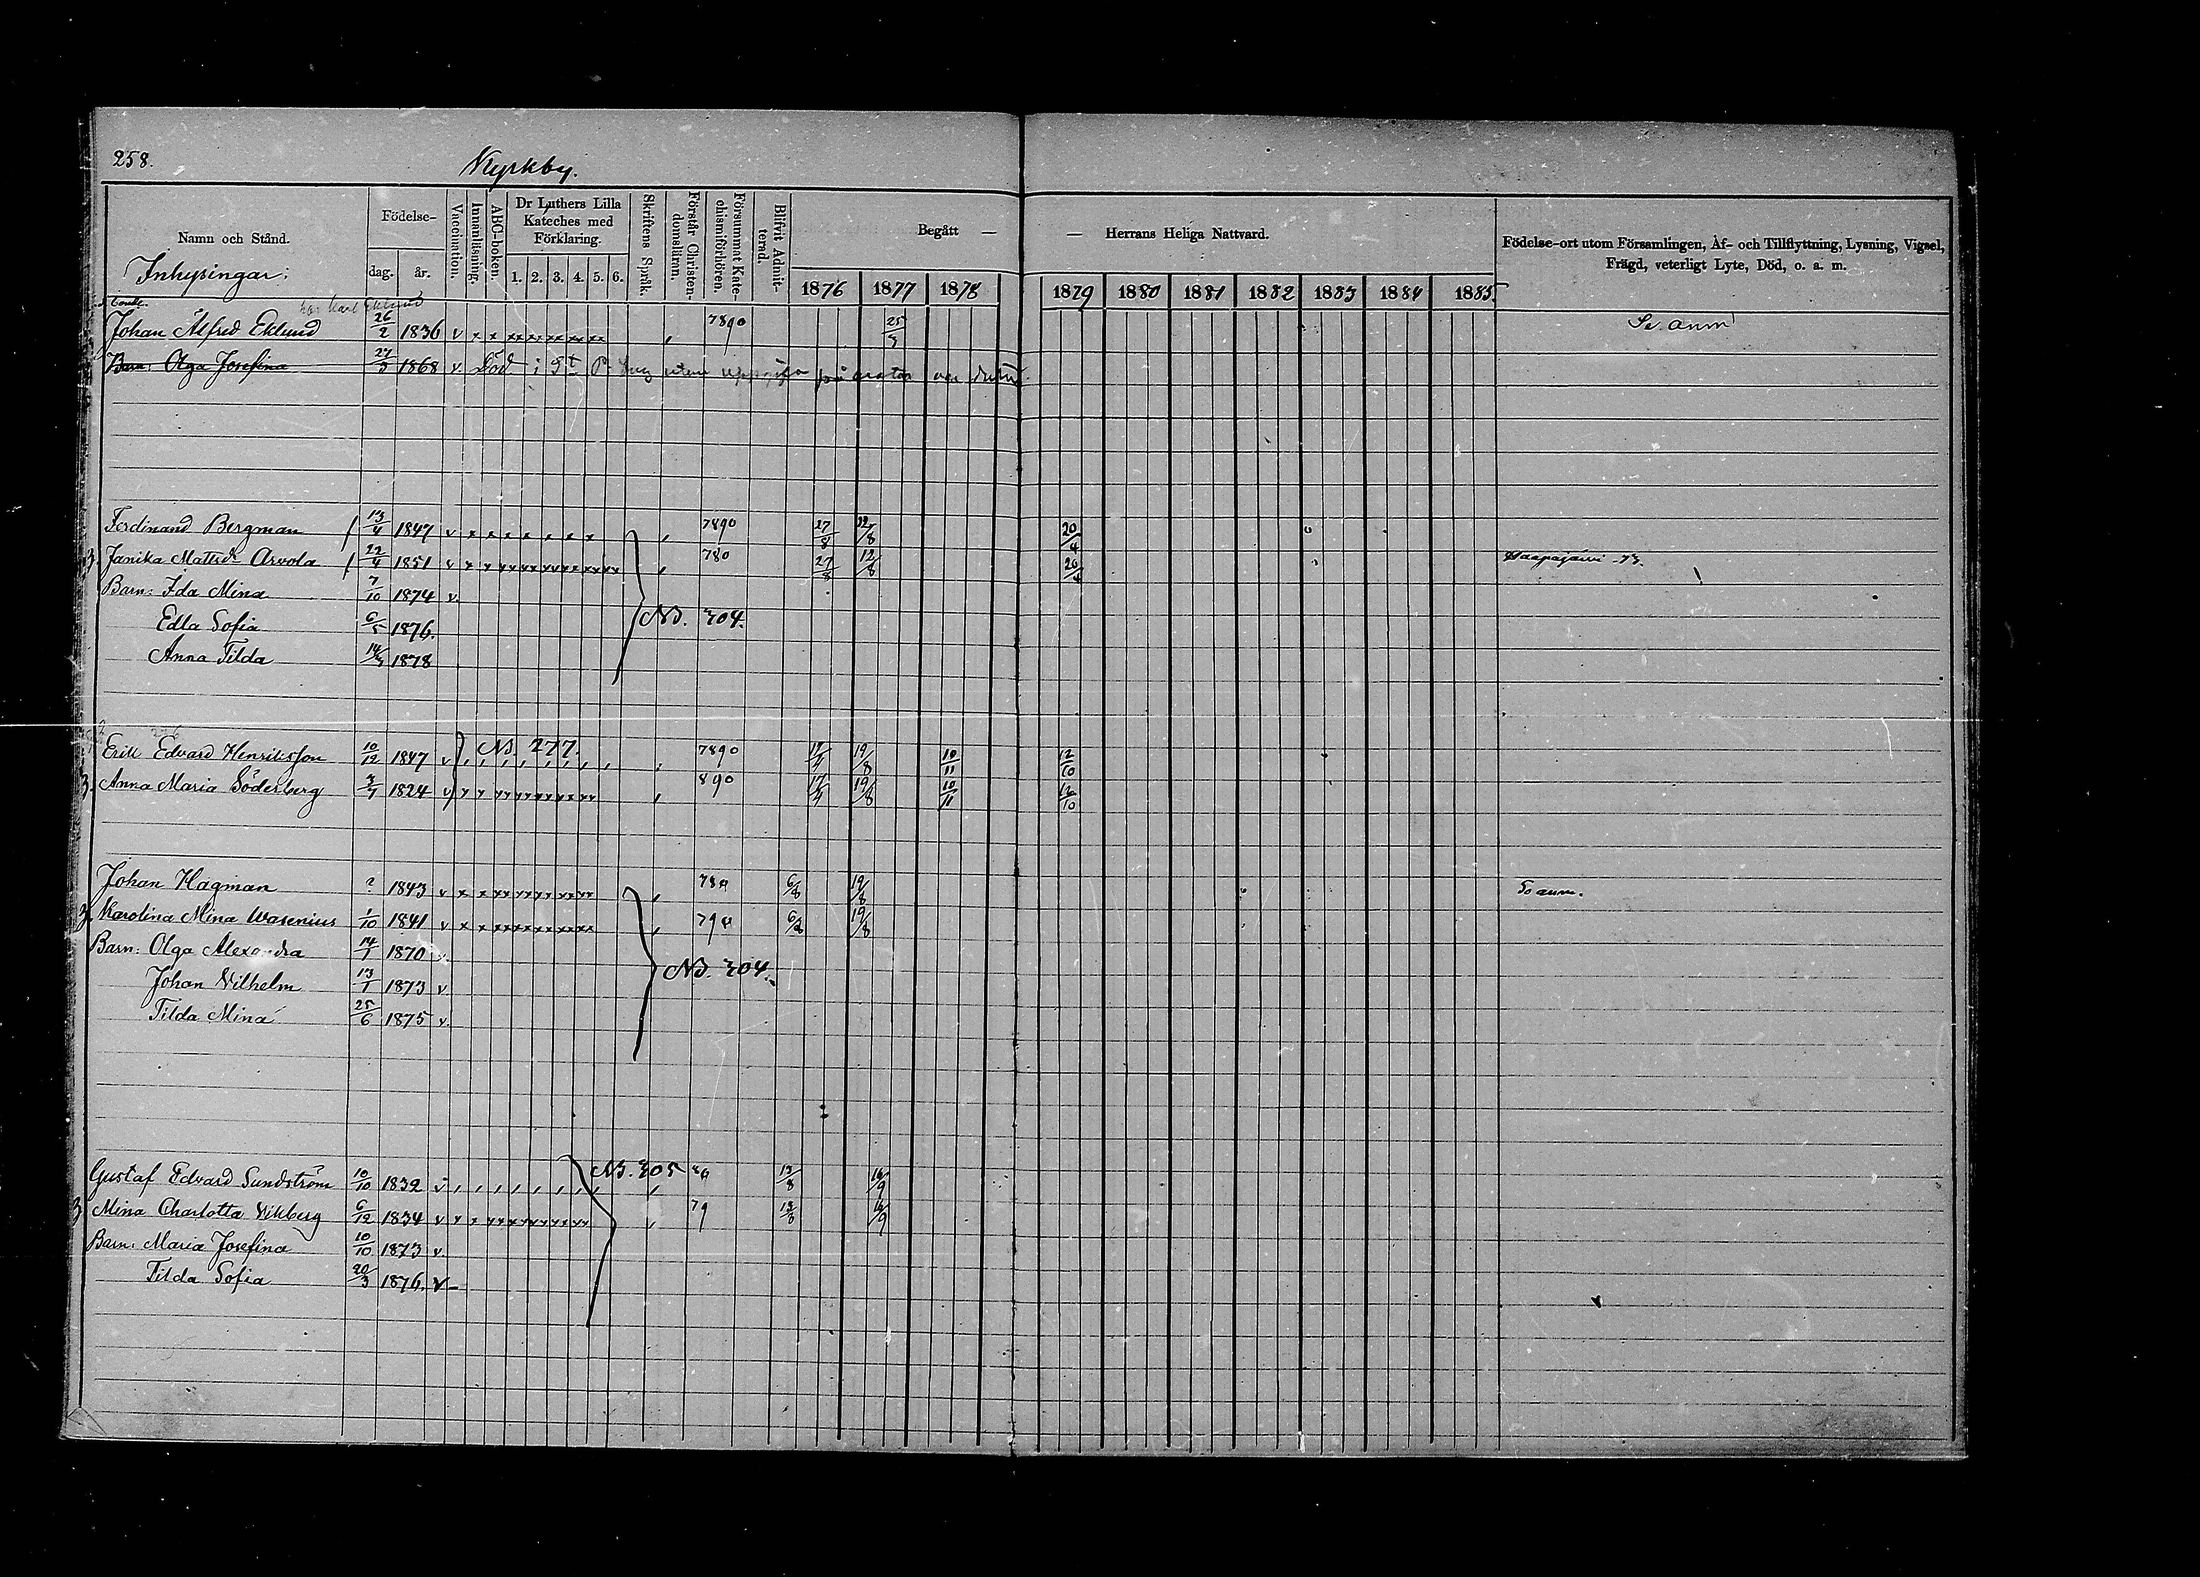 258.
Kyrkby.
Namn och Stånd.
Inhysingar:
Födelse-
dag. år.
Vaccination.
Innanläsning.
ABC-boken.
Dr Luthers Lilla
Kateches med
Förklaring.
1. 2. 3. 4. 5. 6.
Skriftens Språk.
Förstår Christen-
domsläran.
Försummat Kate-
chismiförhören.
Blifvit Admit-
terad.
Begått —
— Herrans Heliga Nattvard.
1876 1877 1878 1879 1880 1881 1882 1883 1884 1885
Födelse-ort utom Församlingen, Af- och Tillflyttning, Lysning, Vigsel,
Frägd, veterligt Lyte, Död, o. a. m.
Johan Alfred Eklund 26/2 1836 v 7890 Se anm
Barn: Olga Josefina 1868 v. Död i St P. utan uppgift på
Ferdinand Bergman 13/4 1847 v 7890 27/8 12/8 20/4
3. Janika Mattsdr Arvola 22/4 1851 v 780 27/8 12/8 20/4 Haapajärvi 73.
Barn: Ida Mina 7/10 1874 v.
Edla Sofia 6/5 1876. No. 304.
Anna Tilda 1878
Erik Edvard Henriksson 10/12 1847 v No. 277. 7890 17/4 19/8 10/11 12/10
3. Anna Maria Söderberg 1824 v 890 17/4 19/8 10/11 12/10
Johan Hagman ? 1843 v 780 6/8 19/8 So anm.
3. Karolina Mina Wasenius 1/10 1841 v 790 6/8 19/8
Barn: Olga Alexandra 14/1 1870 v.
Johan Vilhelm 13/1 1873 v No. 304.
Tilda Mina 25/6 1875 v.
Gustaf Edvard Sundström 10/10 1832 v No. 305 13/8 16/9
3 Mina Charlotta Vikberg 6/12 1834 v 79 13/8 16/9
Barn: Maria Josefina 10/10 1873 v
Tilda Sofia 20/3 1876. v